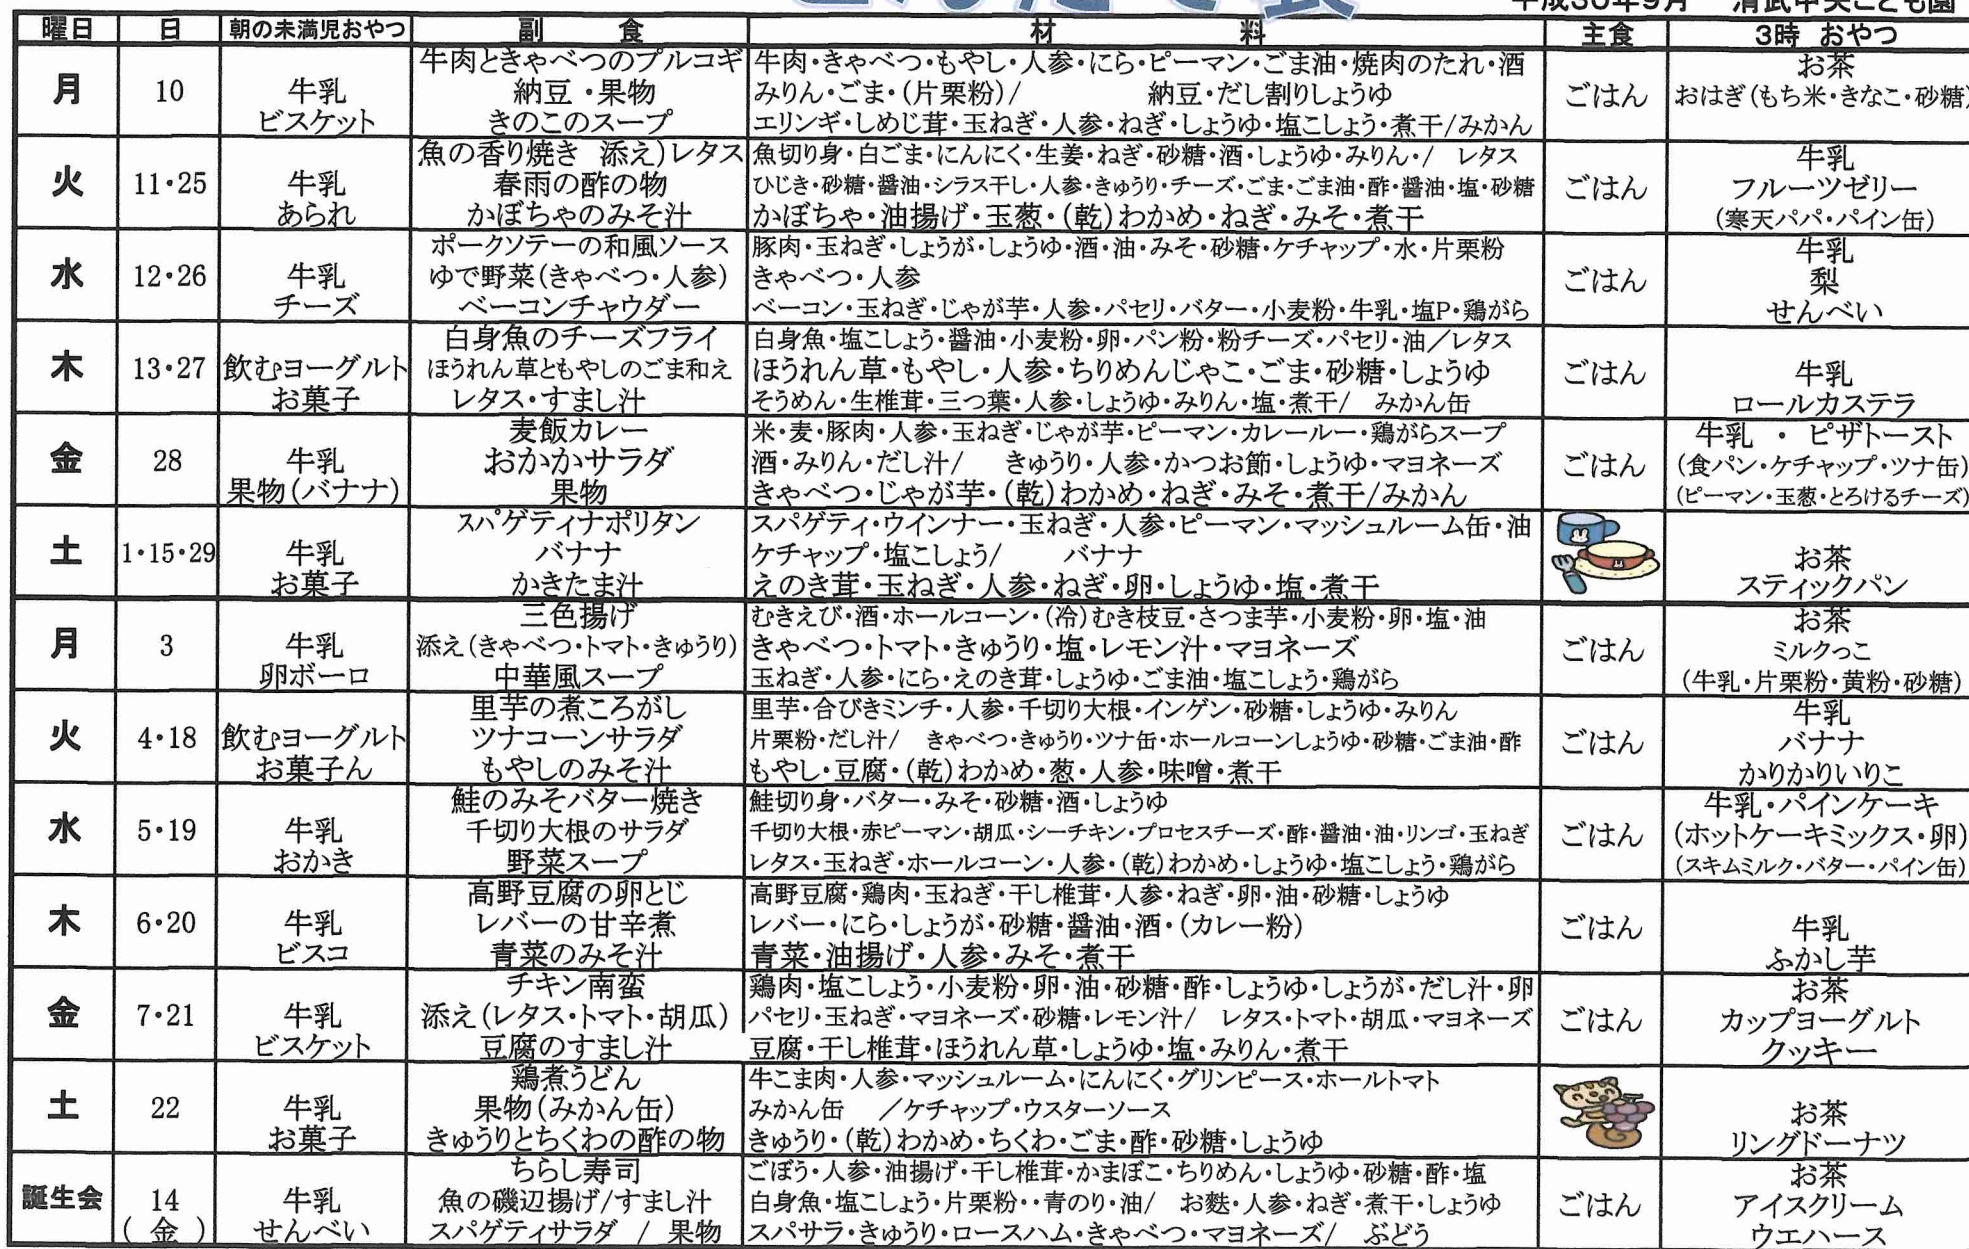 平成30年9月 清武中央こども園
曜日 日 朝の未満児おやつ 副 食 材 料 主食 3時 おやつ
月 10 牛乳 ビスケット
牛肉ときゃべつのプルコギ
納豆・果物
きのこのスープ
牛肉・きゃべつ・もやし・人参・にら・ピーマン・ごま油・焼肉のたれ・酒
みりん・ごま・(片栗粉)/ 納豆・だし割りしょうゆ
エリンギ・しめじ茸・玉ねぎ・人参・ねぎ・しょうゆ・塩こしょう・煮干/みかん
ごはん
お茶
おはぎ(もち米・きなこ・砂糖)
火 11・25 牛乳 あられ
魚の香り焼き 添え)レタス
春雨の酢の物
かぼちゃのみそ汁
魚切り身・白ごま・にんにく・生姜・ねぎ・砂糖・酒・しょうゆ・みりん・/ レタス
ひじき・砂糖・醤油・シラス干し・人参・きゅうり・チーズ・ごま・ごま油・酢・醤油・塩・砂糖
かぼちゃ・油揚げ・玉葱・(乾)わかめ・ねぎ・みそ・煮干
ごはん
牛乳
フルーツゼリー
(寒天パパ・パイン缶)
水 12・26 牛乳 チーズ
ポークソテーの和風ソース
ゆで野菜(きゃべつ・人参)
ベーコンチャウダー
豚肉・玉ねぎ・しょうが・しょうゆ・酒・油・みそ・砂糖・ケチャップ・水・片栗粉
きゃべつ・人参
ベーコン・玉ねぎ・じゃが芋・人参・パセリ・バター・小麦粉・牛乳・塩P・鶏がら
ごはん
牛乳
梨
せんべい
木 13・27 飲むヨーグルト お菓子
白身魚のチーズフライ
ほうれん草ともやしのごま和え
レタス・すまし汁
白身魚・塩こしょう・醤油・小麦粉・卵・パン粉・粉チーズ・パセリ・油/レタス
ほうれん草・もやし・人参・ちりめんじゃこ・ごま・砂糖・しょうゆ
そうめん・生椎茸・三つ葉・人参・しょうゆ・みりん・塩・煮干/ みかん缶
ごはん
牛乳
ロールカステラ
金 28 牛乳 果物(バナナ)
麦飯カレー
おかかサラダ
果物
米・麦・豚肉・人参・玉ねぎ・じゃが芋・ピーマン・カレールー・鶏がらスープ
酒・みりん・だし汁/ きゅうり・人参・かつお節・しょうゆ・マヨネーズ
きゃべつ・じゃが芋・(乾)わかめ・ねぎ・みそ・煮干/みかん
ごはん
牛乳 ・ ピザトースト
(食パン・ケチャップ・ツナ缶)
(ピーマン・玉葱・とろけるチーズ)
土 1・15・29 牛乳 お菓子
スパゲティナポリタン
バナナ
かきたま汁
スパゲティ・ウインナー・玉ねぎ・人参・ピーマン・マッシュルーム缶・油
ケチャップ・塩こしょう/ バナナ
えのき茸・玉ねぎ・人参・ねぎ・卵・しょうゆ・塩・煮干
お茶
スティックパン
月 3 牛乳 卵ボーロ
三色揚げ
添え(きゃべつ・トマト・きゅうり)
中華風スープ
むきえび・酒・ホールコーン・(冷)むき枝豆・さつま芋・小麦粉・卵・塩・油
きゃべつ・トマト・きゅうり・塩・レモン汁・マヨネーズ
玉ねぎ・人参・にら・えのき茸・しょうゆ・ごま油・塩こしょう・鶏がら
ごはん
お茶
ミルクっこ
(牛乳・片栗粉・黄粉・砂糖)
火 4・18 飲むヨーグルト お菓子ん
里芋の煮ころがし
ツナコーンサラダ
もやしのみそ汁
里芋・合びきミンチ・人参・千切り大根・インゲン・砂糖・しょうゆ・みりん
片栗粉・だし汁/ きゃべつ・きゅうり・ツナ缶・ホールコーンしょうゆ・砂糖・ごま油・酢
もやし・豆腐・(乾)わかめ・葱・人参・味噌・煮干
ごはん
牛乳
バナナ
かりかりいりこ
水 5・19 牛乳 おかき
鮭のみそバター焼き
千切り大根のサラダ
野菜スープ
鮭切り身・バター・みそ・砂糖・酒・しょうゆ
千切り大根・赤ピーマン・胡瓜・シーチキン・プロセスチーズ・酢・醤油・油・リンゴ・玉ねぎ
レタス・玉ねぎ・ホールコーン・人参・(乾)わかめ・しょうゆ・塩こしょう・鶏がら
ごはん
牛乳・パインケーキ
(ホットケーキミックス・卵)
(スキムミルク・バター・パイン缶)
木 6・20 牛乳 ビスコ
高野豆腐の卵とじ
レバーの甘辛煮
青菜のみそ汁
高野豆腐・鶏肉・玉ねぎ・干し椎茸・人参・ねぎ・卵・油・砂糖・しょうゆ
レバー・にら・しょうが・砂糖・醤油・酒・(カレー粉)
青菜・油揚げ・人参・みそ・煮干
ごはん
牛乳
ふかし芋
金 7・21 牛乳 ビスケット
チキン南蛮
添え(レタス・トマト・胡瓜)
豆腐のすまし汁
鶏肉・塩こしょう・小麦粉・卵・油・砂糖・酢・しょうゆ・しょうが・だし汁・卵
パセリ・玉ねぎ・マヨネーズ・砂糖・レモン汁/ レタス・トマト・胡瓜・マヨネーズ
豆腐・干し椎茸・ほうれん草・しょうゆ・塩・みりん・煮干
ごはん
お茶
カップヨーグルト
クッキー
土 22 牛乳 お菓子
鶏煮うどん
果物(みかん缶)
きゅうりとちくわの酢の物
牛こま肉・人参・マッシュルーム・にんにく・グリンピース・ホールトマト
みかん缶 /ケチャップ・ウスターソース
きゅうり・(乾)わかめ・ちくわ・ごま・酢・砂糖・しょうゆ
お茶
リングドーナツ
誕生会 14 (金) 牛乳 せんべい
ちらし寿司
魚の磯辺揚げ/すまし汁
スパゲティサラダ / 果物
ごぼう・人参・油揚げ・干し椎茸・かまぼこ・ちりめん・しょうゆ・砂糖・酢・塩
白身魚・塩こしょう・片栗粉・・青のり・油/ お麩・人参・ねぎ・煮干・しょうゆ
スパサラ・きゅうり・ロースハム・きゃべつ・マヨネーズ/ ぶどう
ごはん
お茶
アイスクリーム
ウエハース